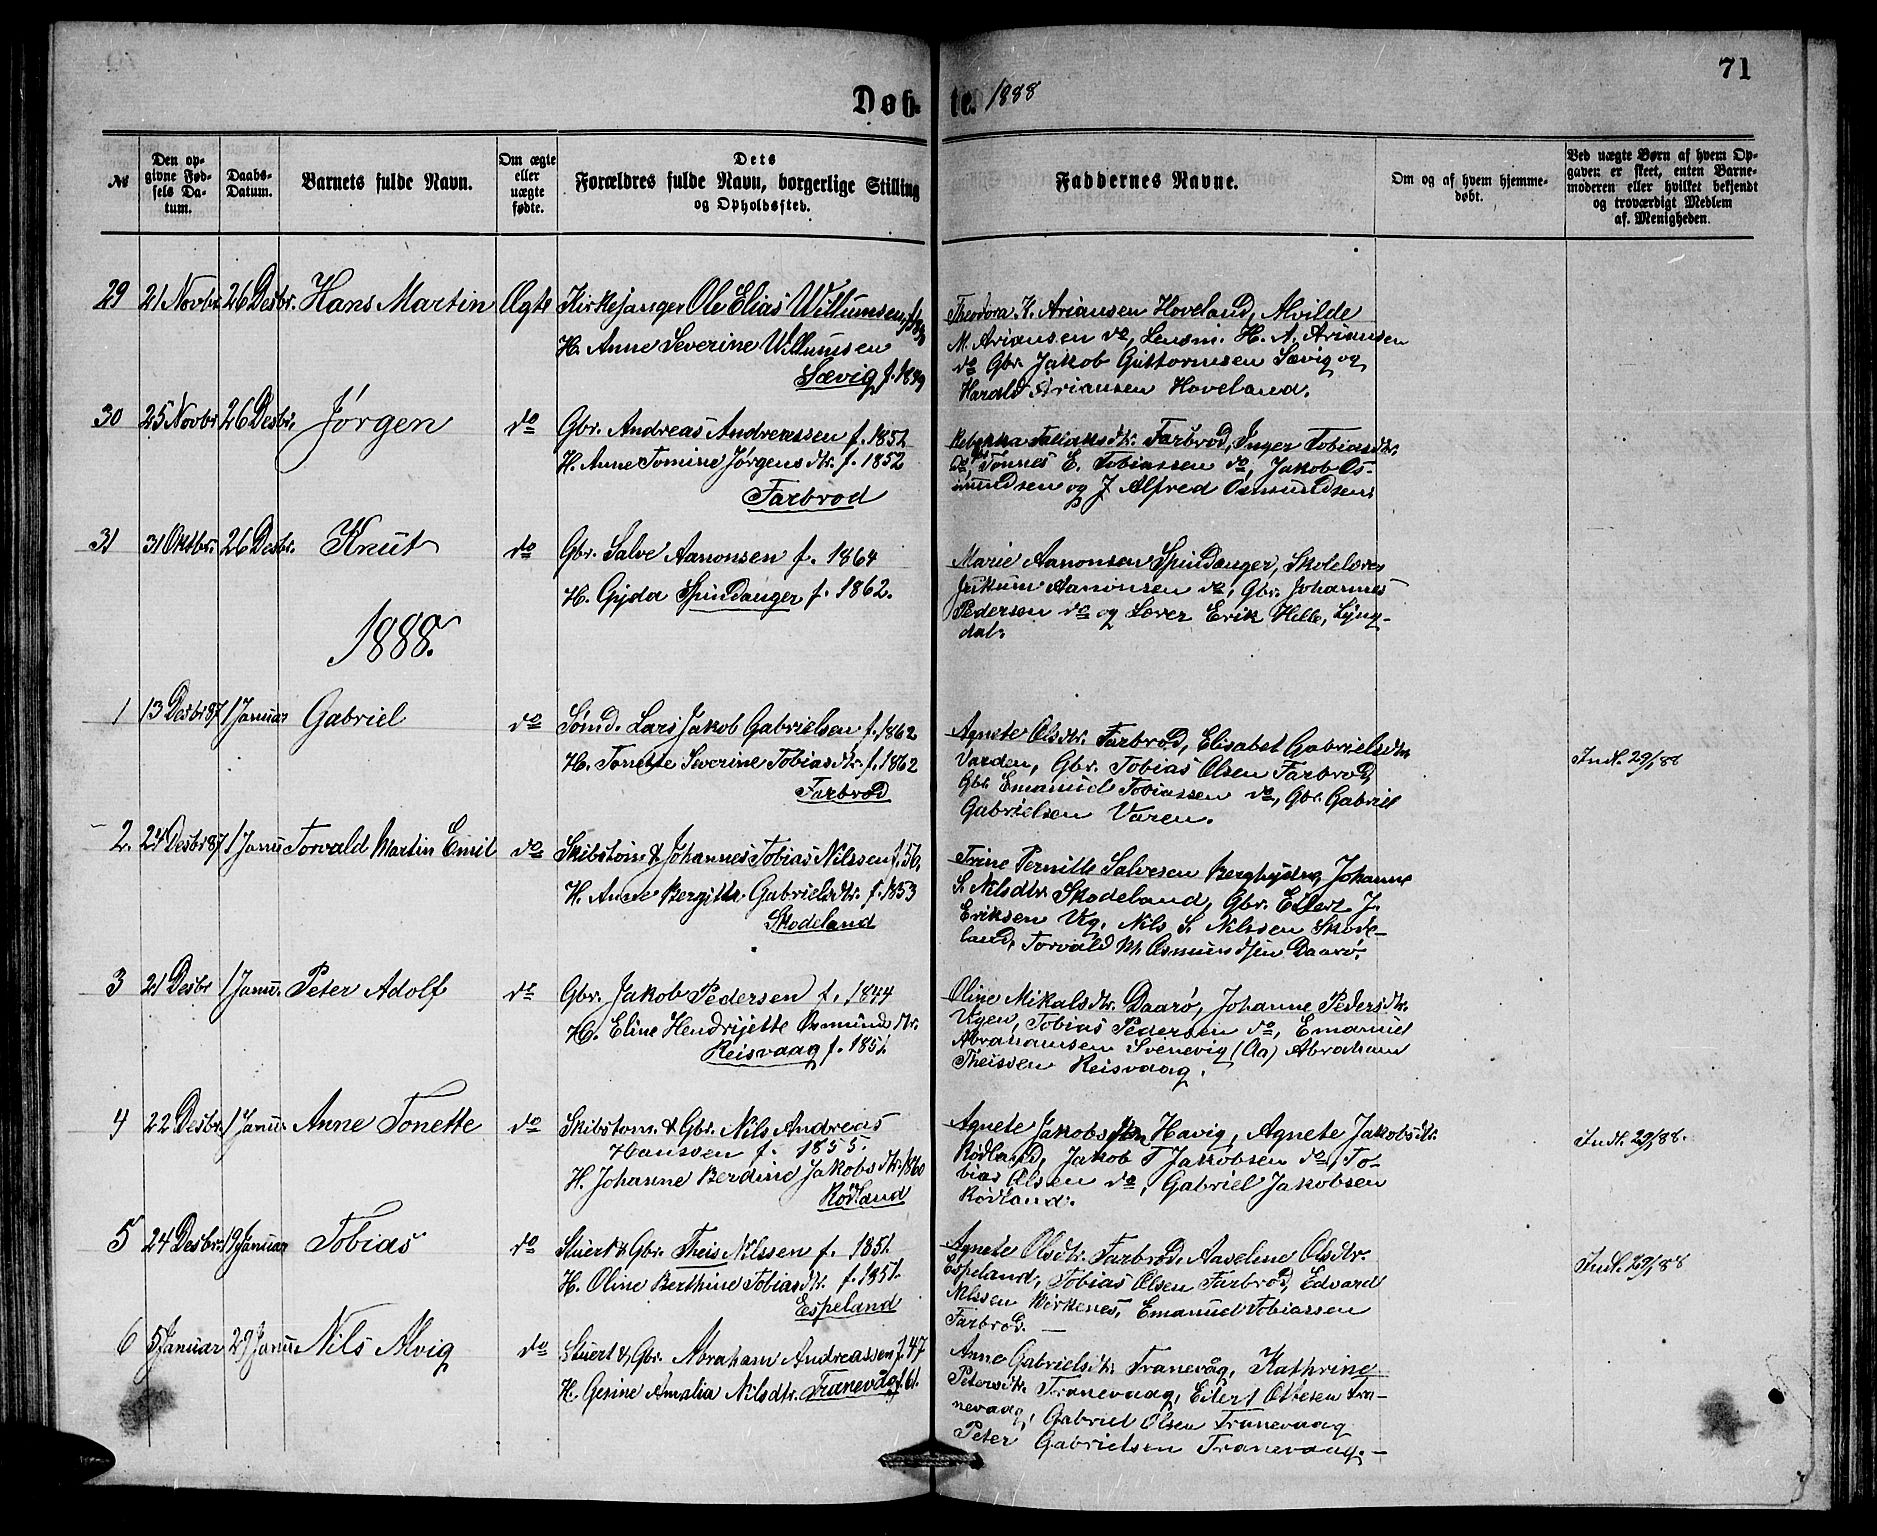 71
Døb- te. 1888
№
Den op-
givne Fød-
sels Da-
tum.
Daabs-
Datum.
Barnets fulde Navn.
Om ægte
eller
uægte
fødte.
Dets
Forældres fulde Navn, borgerlige Stilling
og Opholdssted.
Faddernes Navne.
Om og af hvem hjemme-
døbt.
Ved uægte Børn af hvem Op-
gaven er skeet, enten Barne-
moderen eller hvilket bekjendt
og troværdigt Medlem
af Menigheden.
29 21 Novbr 26 Desbr. Hans Martin Ægte Kirkesanger Ole Elias Willumsen
H. Anne Severine Willumsen
Sævig f. 1849
Theodora K. Ariansen Hoveland, Alvilde
M. Ariansen do, Lensm. H. A. Ariansen
do Gbr. Jakob Guttormsen Sævig og
Harald Ariansen Hoveland.
30 25 Novbr 26 Desbr. Jørgen do Gbr. Andreas Andreassen f. 1851
H. Anne Tomine Jørgensdtr. f. 1852
Farbrod
Rebekka Tobiasdtr. Farbrod, Inger Tobiasdtr.
do, Tønnes E. Tobiassen do, Jakob Os-
mundsen og J Alfred Osmundsen
31 31 Oktbr. 26 Desbr. Knut do Gbr. Salve Aanonsen f. 1864
H. Gyda Spindanger f. 1862.
Marie Aanonsen Spindanger, Skolelærer
Jukum Aanonsen do, Gbr. Johannes
Pedersen do og Lærer Erik Helle, Lyng-
dal.
1888.
1 13 Desbr 87 1 Januar Gabriel do Sømd. Lars Jakob Gabrielsen f. 1862
H. Tonette Severine Tobiasdtr. f. 1862
Farbrod
Agnete Olsdtr. Farbrod, Elisabet Gabrielsdtr.
Varden, Gbr. Tobias Olsen Farbrod,
Gbr Emanuel Tobiassen do, Gbr. Gabriel
Gabrielsen Varen.
Indt. 29/1 88
2. 24 Desbr 87 1 Janu Torvald Martin Emil do Skibstøm. & Johannes Tobias Nilssen f. 56.
H. Anne Bergitte Gabrielsdtr. f. 1853
Skodeland
Trine Pernille Salvesen Berghydng, Johanne
S. Nilsdtr. Skodeland, Gbr. Eilert J.
Eriksen Vig, Nils S. Nilssen Skode-
land, Torvald M. Osmundsen Daarø.
3 21 Desbr 1 Janu. Peter Adolf do Gbr. Jakob Pedersen f. 1844
H. Eline Hendrijette Osmundsdtr.
Reisvaag f. 1851
Oline Mikalsdtr. Daarø, Johanne Pedersdtr.
Vigen, Tobias Pedersen do, Emanuel
Abrahamsen Svenevig (Aa) Abraham
Theissen Reisvaag.
4 22 Desbr. 1 Janu. Anne Tonette do Skibstøm. & Gbr. Nils Andreas
Hanssen f. 1855.
H. Johanne Berdine Jakobsdtr. 1860
Rødland
Agnete Jakobsen Havig, Agnete Jakobsdtr.
Rødland, Jakob T Jakobsen do, To-
bias Olsen do, Gabriel Jakobsen
Rødland.
Indt. 29/1 88.
5 24 Desbr. 19 Januar Tobias do Stuert & Gbr. Theis Nilssen f. 1851.
H. Oline Berthine Tobiasdtr. f. 1851.
Espeland
Agnete Olsdtr. Farbrod, Aaseline Olsdtr.
Espeland, Tobias Olsen Farbrod, Edvard
Nilssen Birkenes, Emanuel Tobiassen
Farbrod.
Indt. 29/1 88
6 5 Januar 29 Janu Nils Alvig do Stuert & Gbr. Abraham Andreassen f. 47
H. Gesine Amalia Nilsdtr. Tranevåg f. 61.
Anne Gabrielsdtr. Tranevåg, Kathrine
Petersdtr. Tranevaag, Eilert Ottesen Tra-
nevaag, Gabriel Olsen Tranevaag
Peter Gabrielsen Tranevaag.